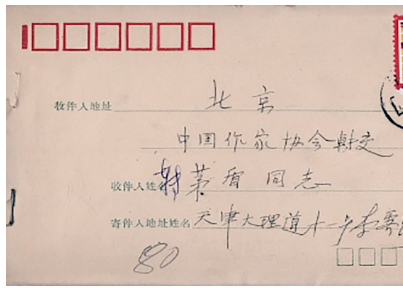 收件人地址 北京
中国作家协会转交
收件人姓名 转茅盾同志
寄件人地址姓名 天津大理道十一号李霁
80